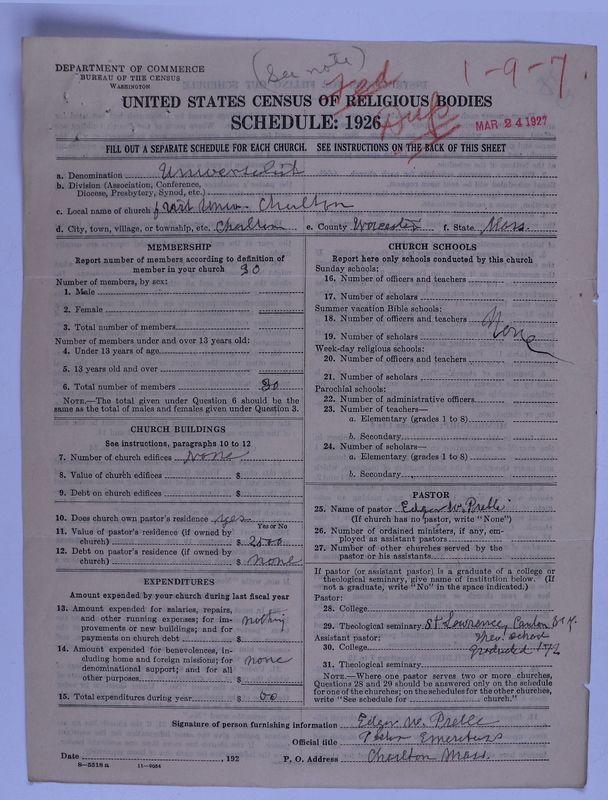 DEPARTMENT OF COMMERCE
BUREAU OF THE CENSUS
WASHINGTON
(See note)
1-9-7
UNITED STATES CENSUS OF RELIGIOUS BODIES
SCHEDULE: 1926
MAR 24 1927
FILL OUT A SEPARATE SCHEDULE FOR EACH CHURCH. SEE INSTRUCTIONS ON THE BACK OF THIS SHEET
a. Denomination Universalist
b. Division (Association, Conference,
Diocese, Presbytery, Synod, etc.)
c. Local name of church first Univ. Charlton
d. City, town, village, or township, etc. Charlton e. County Worcester f. State Mass.
MEMBERSHIP
Report number of members according to definition of
member in your church 30
Number of members, by sex:
1. Male
2. Female
3. Total number of members
Number of members under and over 13 years old:
4. Under 13 years of age
5. 13 years old and over
6. Total number of members 30
NOTE.—The total given under Question 6 should be the
same as the total of males and females given under Question 3.
CHURCH BUILDINGS
See instructions, paragraphs 10 to 12
7. Number of church edifices None
8. Value of church edifices $
9. Debt on church edifices $
10. Does church own pastor's residence yes
Yes or No
11. Value of pastor's residence (if owned by
church) $ 2500
12. Debt on pastor's residence (if owned by
church) $ none
EXPENDITURES
Amount expended by your church during last fiscal year
13. Amount expended for salaries, repairs,
and other running expenses; for im-
provements or new buildings; and for
payments on church debt $ nothing
14. Amount expended for benevolences, in-
cluding home and foreign missions; for
denominational support; and for all
other purposes $ none
15. Total expenditures during year $ 00
CHURCH SCHOOLS
Report here only schools conducted by this church
Sunday schools:
16. Number of officers and teachers
17. Number of scholars
Summer vacation Bible schools:
18. Number of officers and teachers
19. Number of scholars
None
Week-day religious schools:
20. Number of officers and teachers
21. Number of scholars
Parochial schools:
22. Number of administrative officers
23. Number of teachers—
a. Elementary (grades 1 to 8)
b. Secondary
24. Number of scholars—
a. Elementary (grades 1 to 8)
b. Secondary
PASTOR
25. Name of pastor Edgar W. Preble
(If church has no pastor, write "None")
26. Number of ordained ministers, if any, em-
ployed as assistant pastors
27. Number of other churches served by the
pastor or his assistants
If pastor (or assistant pastor) is a graduate of a college or
theological seminary, give name of institution below. (If
not a graduate, write "No" in the space indicated.)
Pastor:
28. College
29. Theological seminary St Lawrence, Canton N.Y.
Assistant pastor: Theo. School
30. College graduated
31. Theological seminary
NOTE.—Where one pastor serves two or more churches,
Questions 28 and 29 should be answered only on the schedule
for one of the churches; on the schedules for the other churches,
write "See schedule for church."
Signature of person furnishing information Edgar W. Preble
Official title Pastor Emeritus
Date , 192 P. O. Address Charlton Mass.
8-5518 a 11-9024